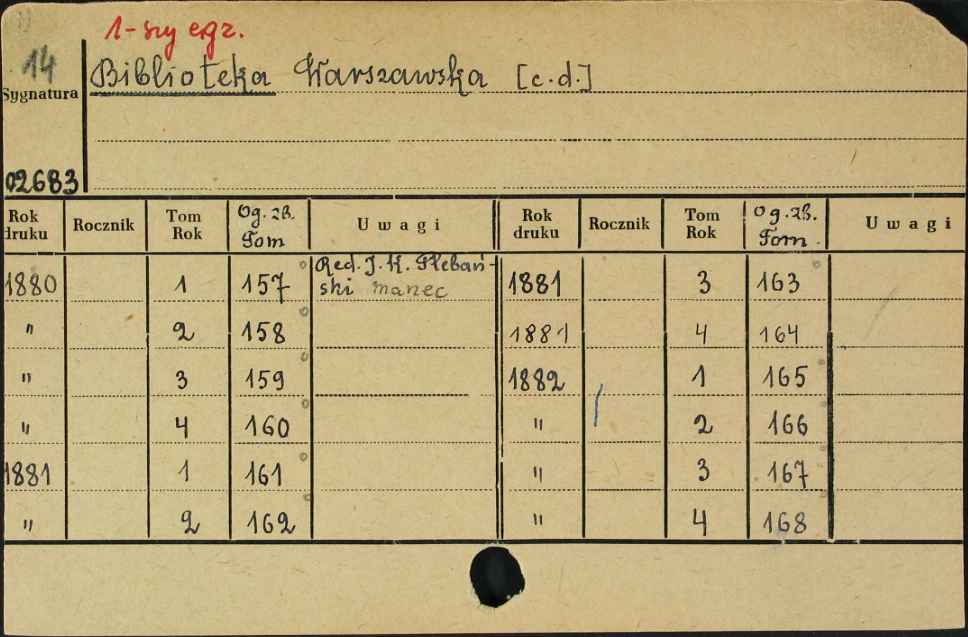 1-szy egz.
14 Biblioteka Warszawska [c.d.]
Sygnatura
02683
Rok druku Rocznik Tom Rok Og. zb. Tom Uwagi Rok druku Rocznik Tom Rok Og. zb. Tom. Uwagi
1880 1 157 Red. J. K. Plebań- 1881 3 163
ski
" 2 158 1881 4 164
" 3 159 1882 1 165
" 4 160 " 2 166
1881 1 161 " 3 167
" 2 162 " 4 168